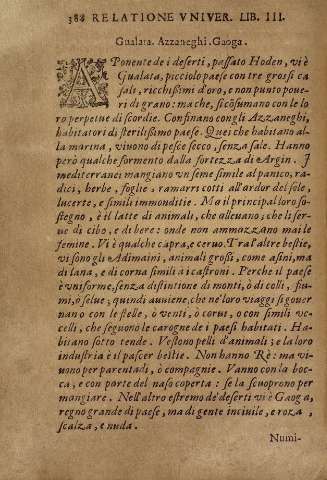 388 RELATIONE VNIVER. LIB. III.
Gualata. Azzaneghi. Gaoga.
A Ponente de i deserti, passato Hoden, vi è
Gualata, picciolo paese con tre grossi ca
sali, ricchissimi d'oro, e non punto poue-
ri di grano: ma che, si cõsumano con le lo
ro perpetue discordie. Confinano con gli Azzaneghi,
habitatori di sterilissimo paese. Quei che habitano al-
la marina, viuono di pesce secco, senza sale. Hanno
però qualche formento dalla fortezza di Argin. I
mediterranei mangiano vn seme simile al panico, ra-
dici, herbe, foglie; ramarri cotti all'ardor del sole,
lucerte, e simili immonditie. Ma il principal loro so-
stegno, è il latte di animali, che alleuano; che li ser-
ue di cibo, e di bere: onde non ammazzano mai le
femine. Vi è qualche capra, e ceruo. Tra l'altre bestie,
vi sono gli Adimaini, animali grossi, come asini, ma
di lana, e di corna simili a i castroni. Perche il paese
è vniforme, senza distintione di monti, ò di colli, fiu-
mi, ò selue; quindi auuiene, che ne' loro viaggi si gouer
nano con le stelle, ò venti, ò corui, o con simili vc-
celli, che seguono le carogne de i paesi habitati. Ha-
bitano sotto tende. Vestono pelli d'animali; e la loro
industria è il pascer bestie. Non hanno Rè: ma vi-
uono per parentadi, ò compagnie. Vanno con la boc-
ca, e con parte del naso coperta: se la scuoprono per
mangiare. Nell'altro estremo de' deserti vi è Gaoga,
regno grande di paese, ma di gente inciuile, e roza,
scalza, e nuda.
Numi-